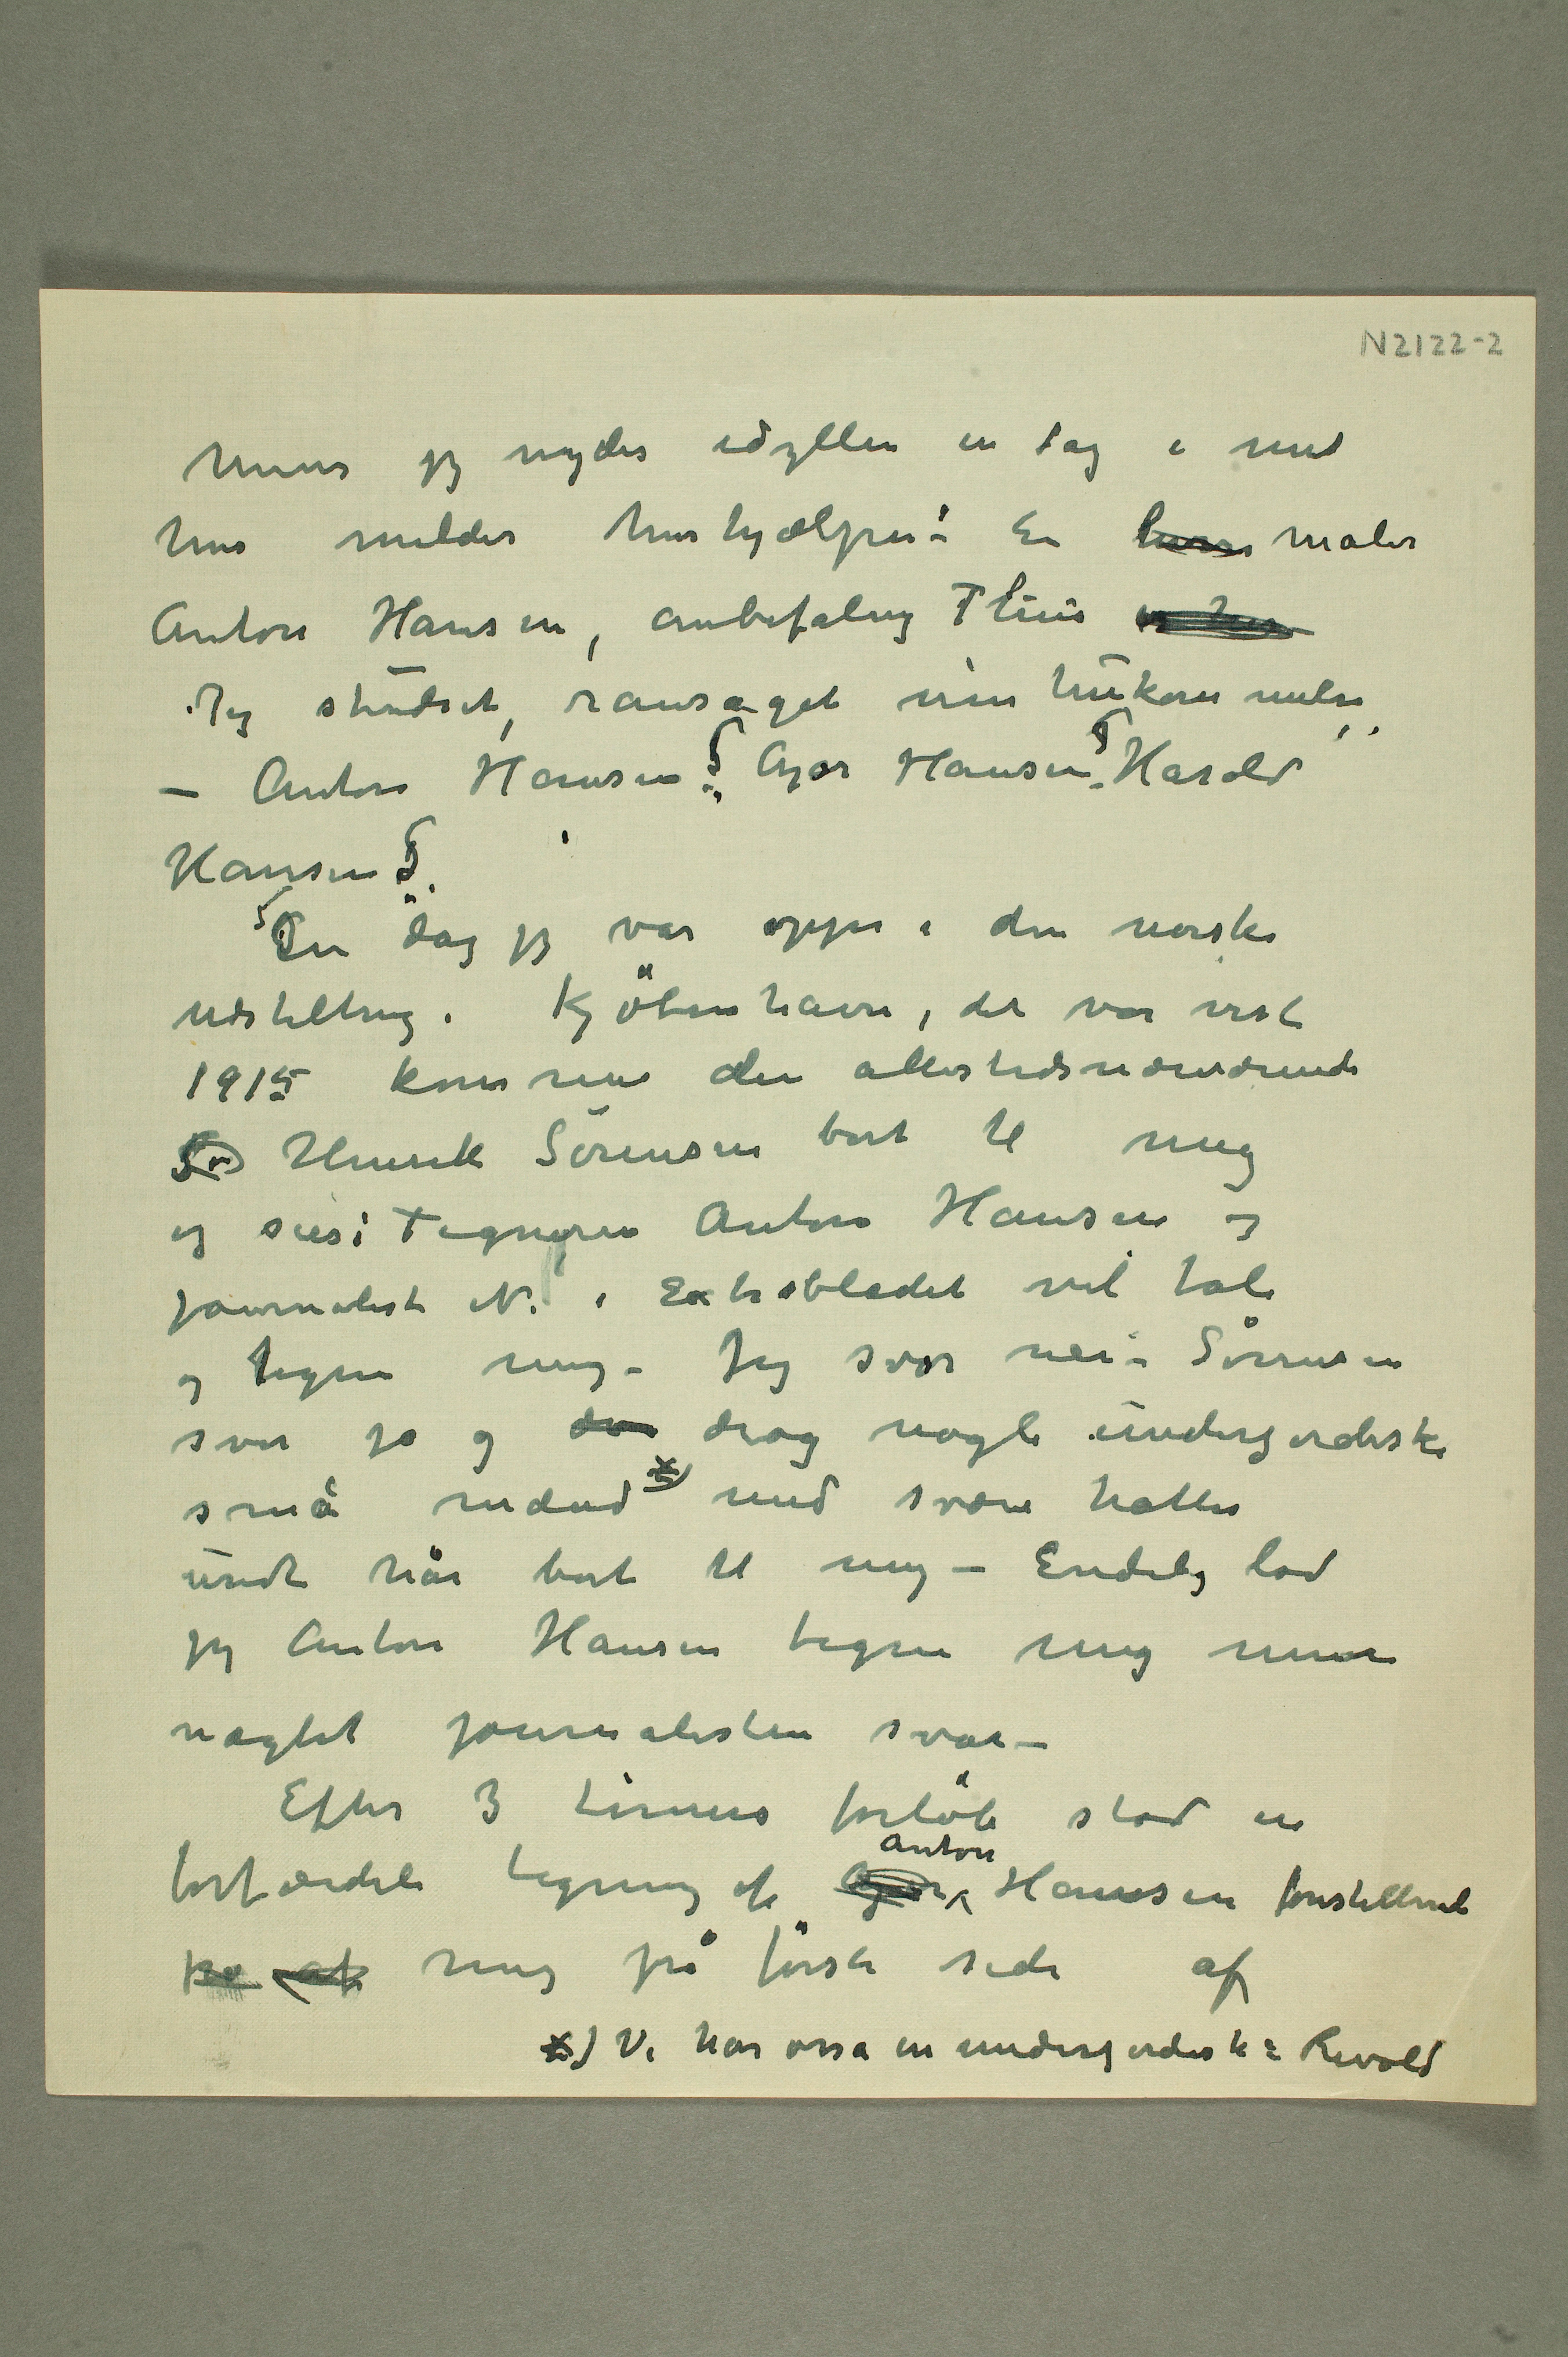 N2122-2
Mens jeg nyder idyllen en dag i mit
hus melder hushjælpen: En herr maler
Anton Hansen, anbefaling Thiis
Jeg studset, ransaget min hukommelse,
– Anton Hansen? Ajar Hansen? Harald
Hansen?
En dag jeg var oppe i den norske
udstilling i Kjøbenhavn, det var vist
1915 kommer den allestedsnærværende
Sø Henrik Sørensen bort til mig
og sier: Tegneren Anton Hansen og
journalist N. i Extrabladet vil tale
og tegne mig – Jeg svar nei – Sørensen
svar ja og dro drog nogle underjordiske
små mænd *) med svære hatter
undt hår bort til mig – Endelig lod
jeg Anton Hansen tegne mig men
nægtet journalisten svar –
Efter 3 timers forløb stod en
forfærdeli tegning af Ajar Anton Hansen forestillende
på af mig på første side af
*) Vi har osså en underjordisk: Revold